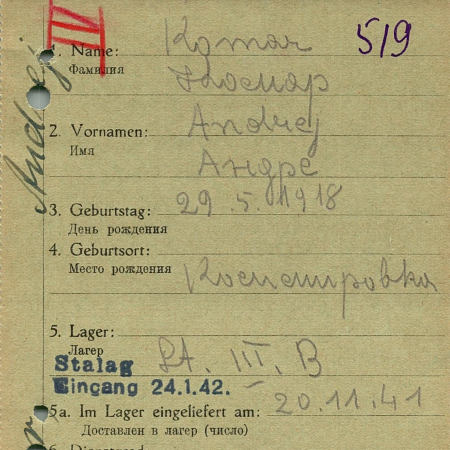 IV
519
1. Name: Komar
Фамилия Комар
Andrej
2. Vornamen: Andrej
Имя Андре
3. Geburtstag: 29.5.1918
День рождения
4. Geburtsort:
Место рождения
5. Lager:
Лагер St. III. B
Stalag
Eingang 24.1.42.
5a. Im Lager eingeliefert am: 20.11.41
Доставлен в лагер (число)